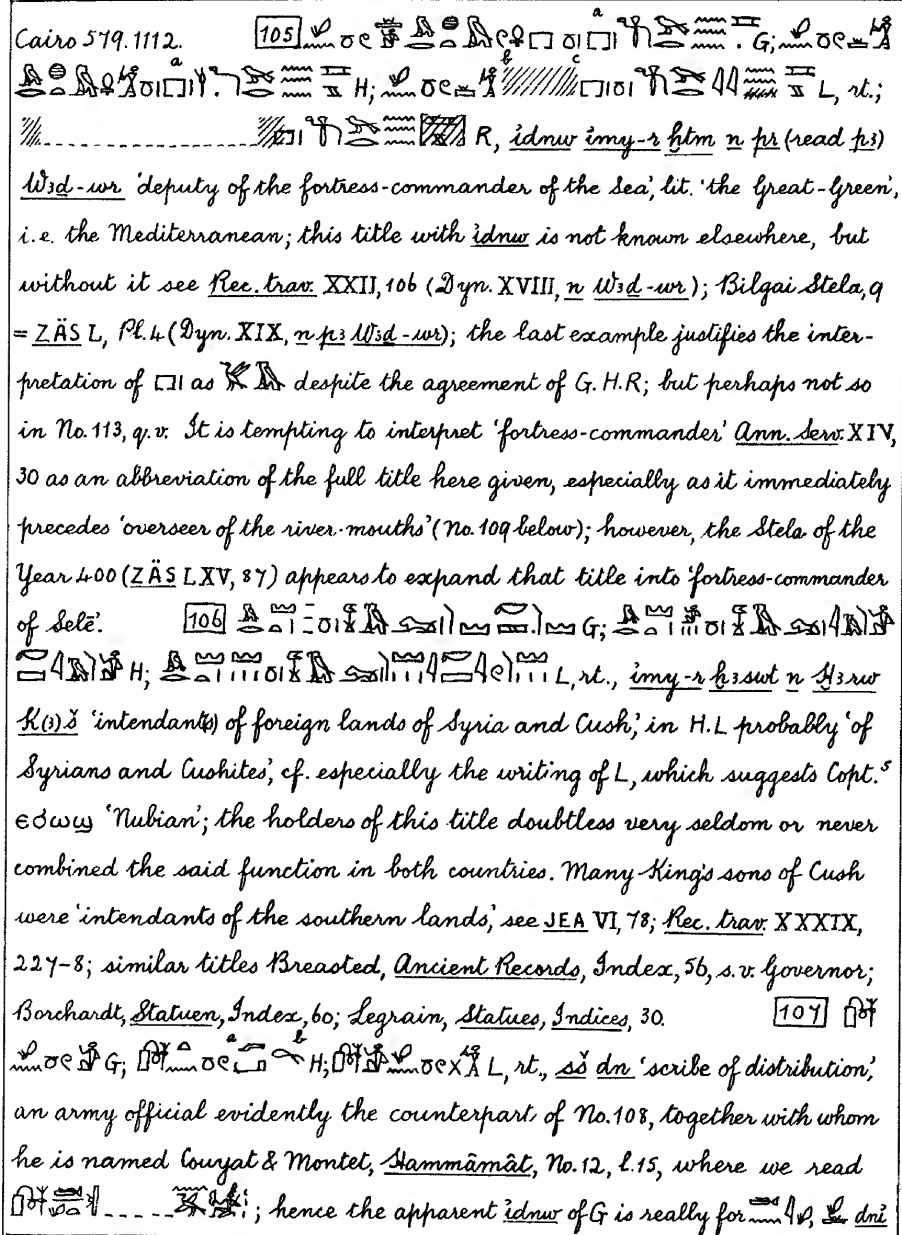 Cairo 579.1112. 105 a . G;
a H; b c L, rt.;
R, idnw imy-r ḫtm n pr (read pꜣ)
Wꜣḏ-wr 'deputy of the fortress-commander of the Sea', lit. 'the Great-Green',
i.e. the Mediterranean; this title with idnw is not known elsewhere, but
without it see Rec. trav. XXII, 106 (Dyn. XVIII, n Wꜣḏ-wr); Bilgai Stela, 9
= ZÄS L, Pl. 4 (Dyn. XIX, n pꜣ Wꜣḏ-wr); the last example justifies the inter-
pretation of 𓉐𓏤 as 𓅮𓄿 despite the agreement of G. H. R; but perhaps not so
in No. 113, q.v. It is tempting to interpret 'fortress-commander' Ann. Serv. XIV,
30 as an abbreviation of the full title here given, especially as it immediately
precedes 'overseer of the river-mouths' (No. 109 below); however, the Stela of the
Year 400 (ZÄS LXV, 87) appears to expand that title into 'fortress-commander
of Selē'. 106 G;
H; L, rt., imy-r ḫꜣswt n Ḫꜣrw
K(ꜣ)š 'intendant(s) of foreign lands of Syria and Cush', in H.L probably 'of
Syrians and Cushites', cf. especially the writing of L, which suggests Copt. ˢ
ⲉϭⲱϣ 'Nubian'; the holders of this title doubtless very seldom or never
combined the said function in both countries. Many King's sons of Cush
were 'intendants of the southern lands', see JEA VI, 78; Rec. trav. XXXIX,
227-8; similar titles Breasted, Ancient Records, Index, 56, s.v. Governor;
Borchardt, Statuen, Index, 60; Legrain, Statues, Indices, 30. 107
G; a b H; L, rt., sš dn 'scribe of distribution',
an army official evidently the counterpart of No. 108, together with whom
he is named Couyat & Montet, Hammâmât, No. 12, l. 15, where we read
; hence the apparent idnw of G is really for dni